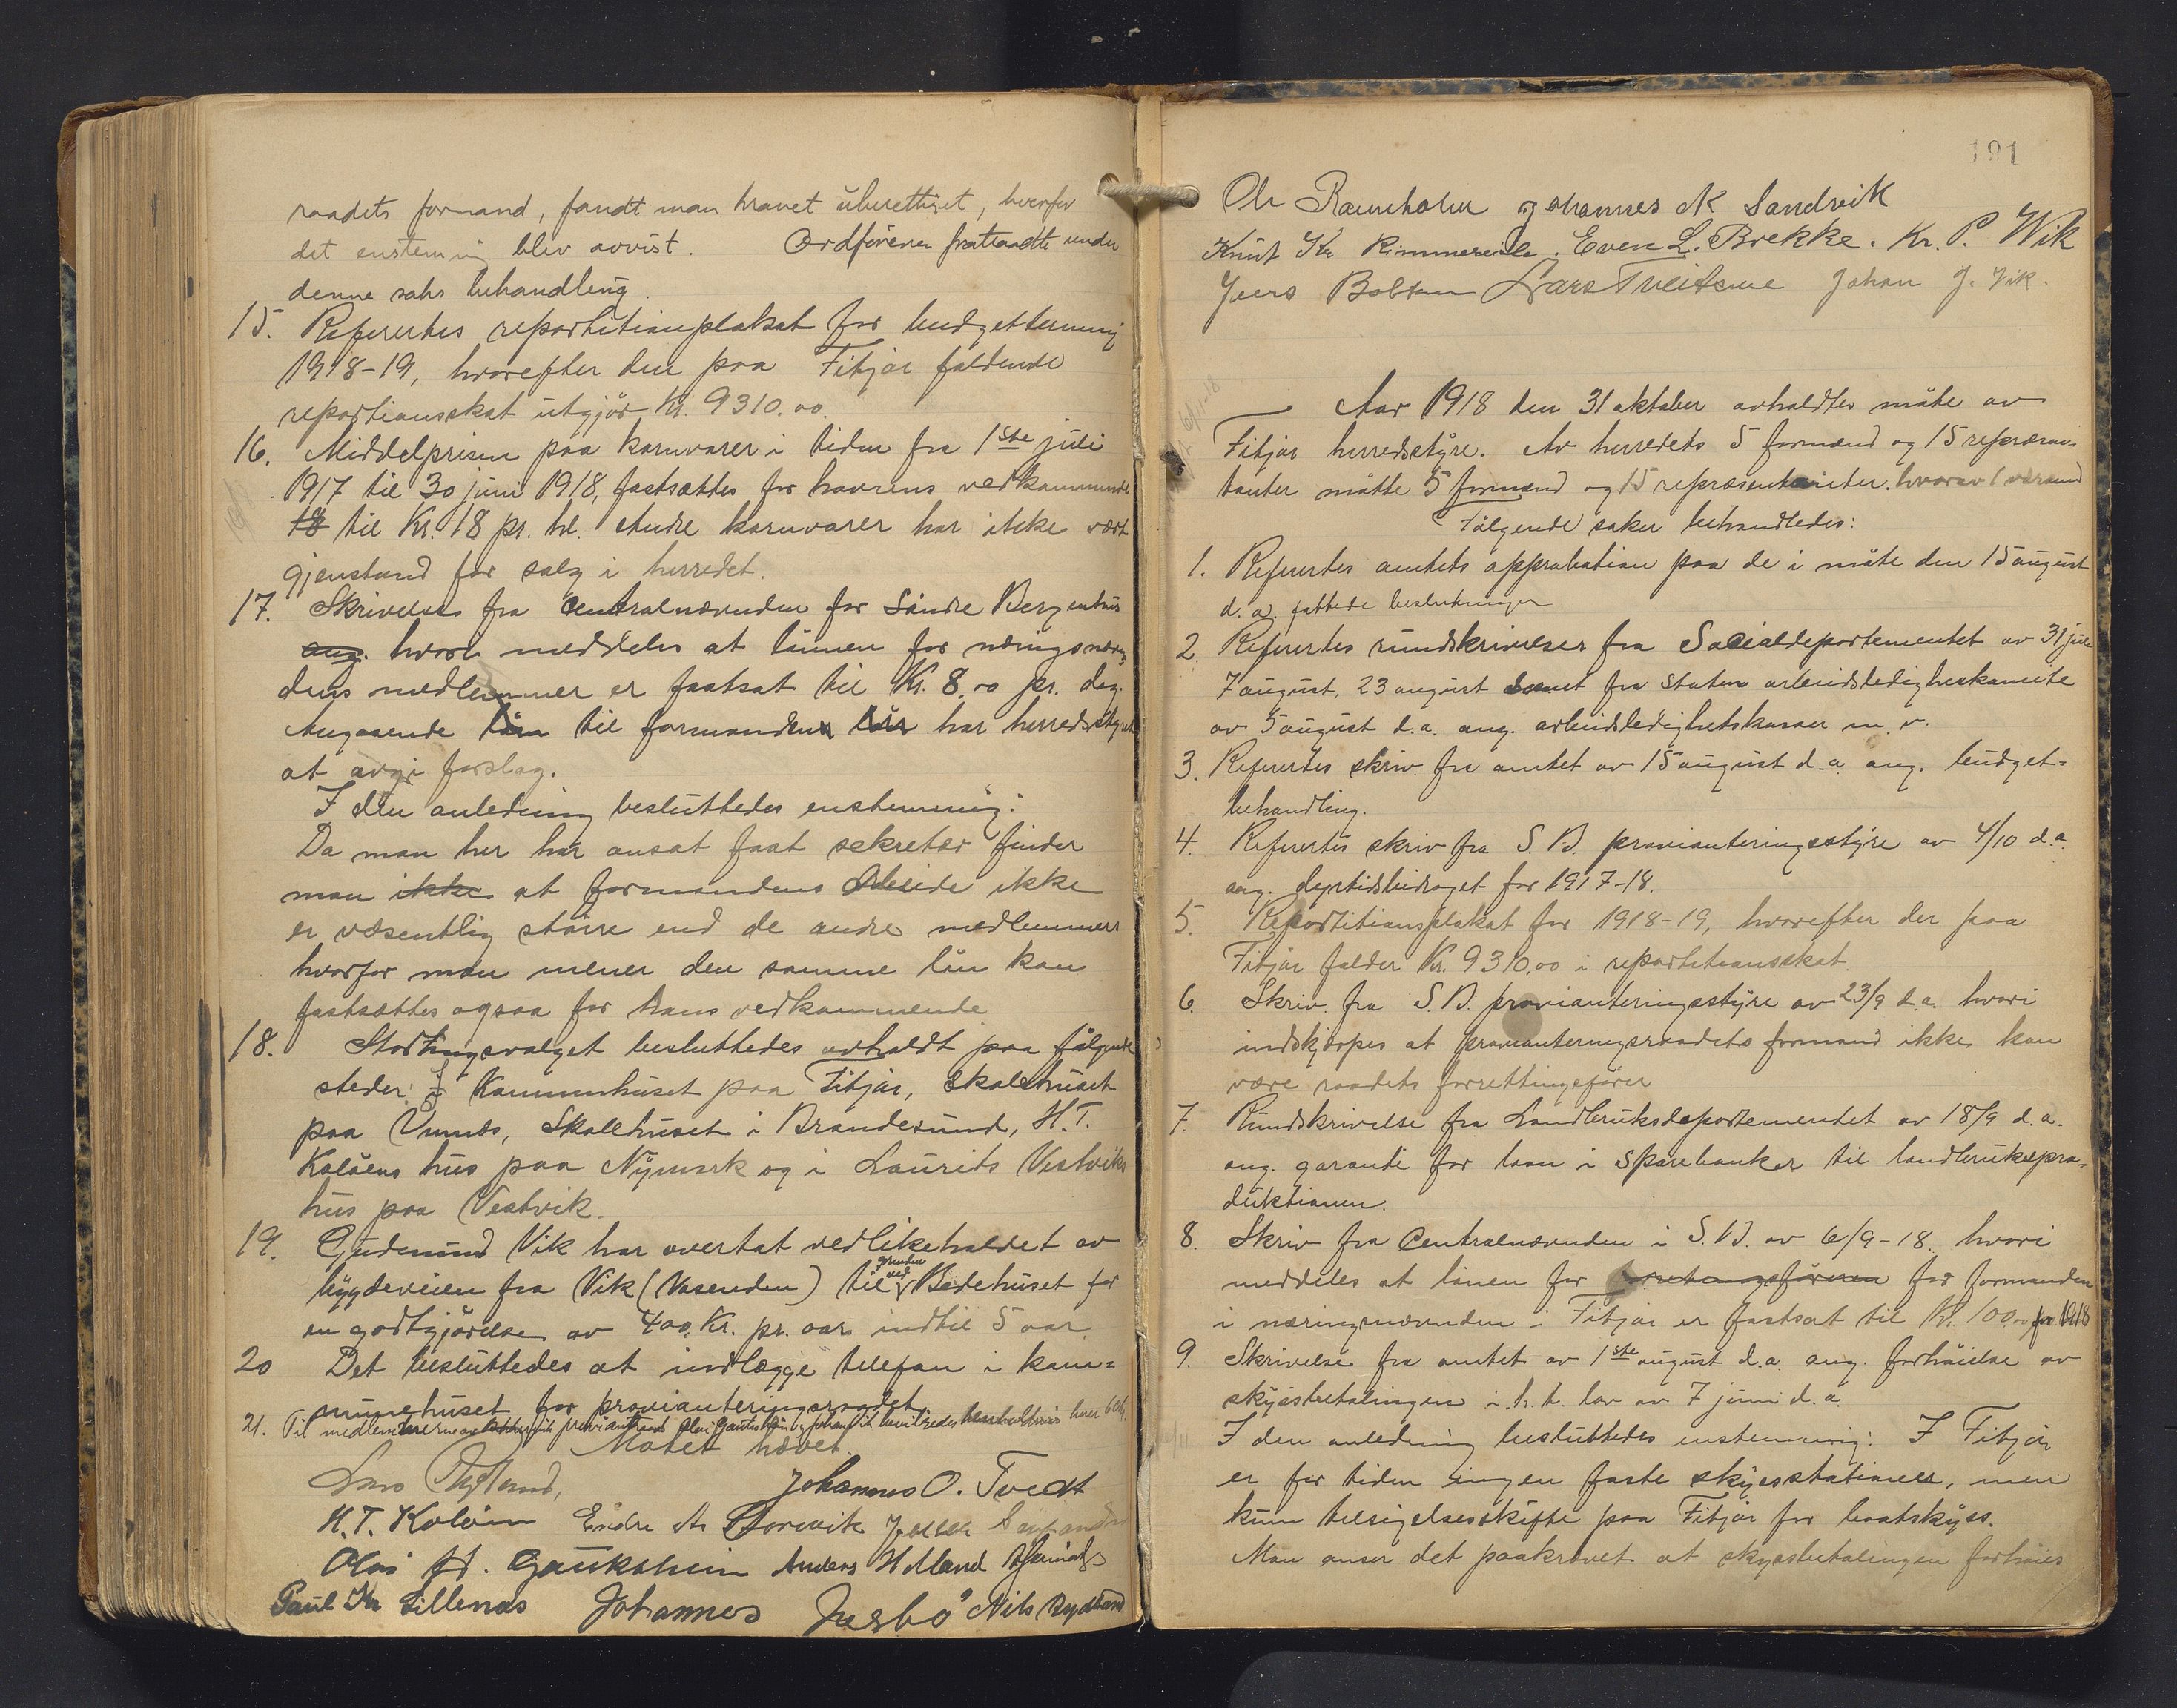 raadets formand, fandt man kravet uberettiget, hvorfor
det enstemmig blev avvist. Ordføreren fratraadte under
denne saks behandling.
15. Refertes repartitionsplakat for budgettermin
1918-19, hvorefter den paa Fitjar faldende
repartionsskat utgjør Kr. 9310.00.
16. Middelprisen paa kornvarer i tiden fra 1ste juli
1917 til 30 juni 1918, fastsættes for havrens vedkommende
18 til Kr. 18 pr. hl. Andre kornvarer har ikke vært
gjenstand for salg i herredet.
17. Skrivelse fra Centralnævnden for Søndre Bergenhus
ang. hvori meddeles at lønnen for næringsnævn-
dens medlemmer er fastsat til Kr. 8.00 pr. dag.
Angaaende løn til formanden har herredsstyret
at avgi forslag.
I den anledning besluttedes enstemmig:
Da man her har ansat fast sekretær finder
man ikke at formandens arbeide ikke
er væsentlig større end de andre medlemmers
hvorfor man mener den samme løn kan
fastsættes ogsaa for hans vedkommende
18. Stortingsvalget besluttedes avholdt paa følgende
steder: I Kommunhuset paa Fitjar, Skolehuset
paa Vumnes, Skolehuset i Brandesund, H. T.
Koløens hus paa Nymark og i Laurits Vestviks
hus paa Vestvik.
19. Gudmund Vik har overtat vedlikeholdet av
bygdeveien fra Vik (Vasenden) til grinden ved Bedehuset for
en godtgjørelse av 400 Kr. pr. aar indtil 5 aar.
20 Det besluttedes at indlægge telefon i kom-
munehuset for provianteringsraadet.
21. Til medlemmerne av provianteringsraadet Olai Gaukstein og Johan Vik
Møtet hævet.
Lars Rydland, Johannes O. Tvedt
H. T. Koløen Endre A. Storevik
Olai H. Gaukstein Anders H Uland
Paul Kr Lillenæs Johannes Nils Rydland
191
Ole Raunholm Johannes K Sandvik
Knut Kr Rimmereide. Even L. Brekke. Kr. P. Wik
Jens Lars Johan J. Vik.
Aar 1918 den 31 oktober avholdtes møte av
Fitjar herredsstyre. Av herredets 5 formænd og 15 repræsen-
tanter møtte 5 formænd og 15 repræsentanter. hvorav 1 varamd
Følgende saker behandledes:
1. Refertes amtets approbation paa de i møte den 15 august
d.a. fattede beslutninger
2. Refertes rundskrivelser fra Socialdepartementet av 31 juli
7 august, 23 august samt fra statens arbeidsledighetskomite
av 5 august d.a. ang. arbeidsledighetskasser m. v.
3. Refertes skriv. fra amtet av 15 august d.a. ang. budget-
behandling.
4. Refertes skriv fra S. B. provianteringsstyre av 4/10 d.a.
ang. dyrtidsbidraget for 1917-18.
5. Repartitionsplakat for 1918-19, hvorefter der paa
Fitjar falder Kr. 9310,00 i repartitionsskat.
6. Skriv. fra S. B. provianteringsstyre av 23/9 d.a. hvori
indskjærpes at provianteringsraadets formand ikke kan
være raadets forretningsfører
7. Rundskrivelse fra Landbruksdepartementet av 18/9 d.a.
ang. garanti for laan i sparebanker til landbrukspro-
duktionen.
8. Skriv fra Centralnævnden i S. B. av 6/9-18. hvori
meddeles at lønen for forretningsføreren for formanden
i næringsnævnden i Fitjar er fastsat til Kr. 100.00 for 1918
9. Skrivelse fra amtet av 1ste august d.a. ang. forhøielse av
skyssbetalingen i. h. t. lov av 7 juni d.a.
I den anledning besluttedes enstemmig: I Fitjar
er for tiden ingen faste skysstationer, men
kun tilsigelsesskifte paa Fitjar for baatskyss.
Man anser det paakrævet at skyssbetalingen forhøies